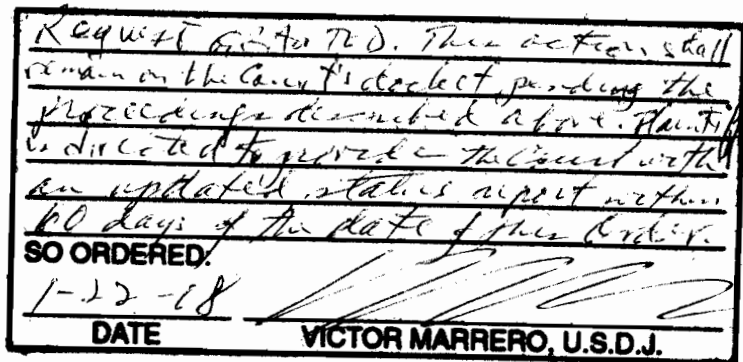 Request GRANTED. This action shall
remain on the Court's docket, pending the
proceedings described above. Plaintiff
is directed to provide the Court with
an updated status report within
60 days of the date of this Order.
SO ORDERED.
1-22-18
DATE VICTOR MARRERO, U.S.D.J.